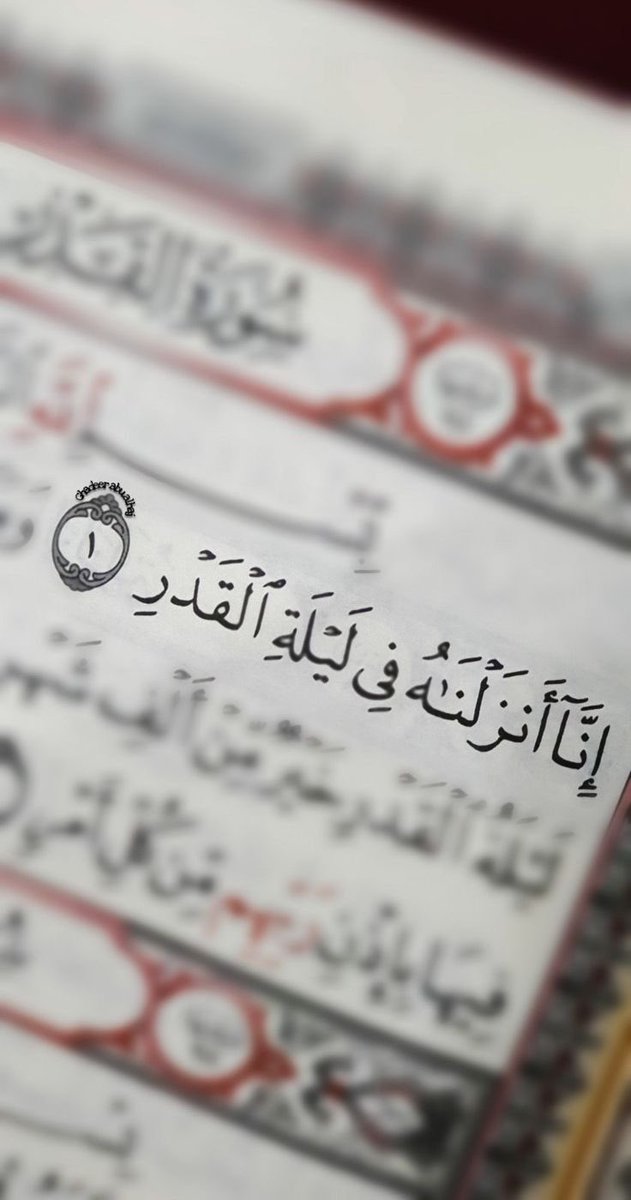 سُورَةُ القَدْرِ
بِسْـــــمِ ٱللَّهِ
Ghadeer abualhaj
إِنَّآ أَنزَلْنَـٰهُ فِى لَيْلَةِ ٱلْقَدْرِ ١
لَيْلَةُ ٱلْقَدْرِ خَيْرٌ مِّنْ أَلْفِ شَهْرٍ
فِيهَا بِإِذْنِ رَبِّهِم مِّن كُلِّ أَمْرٍ